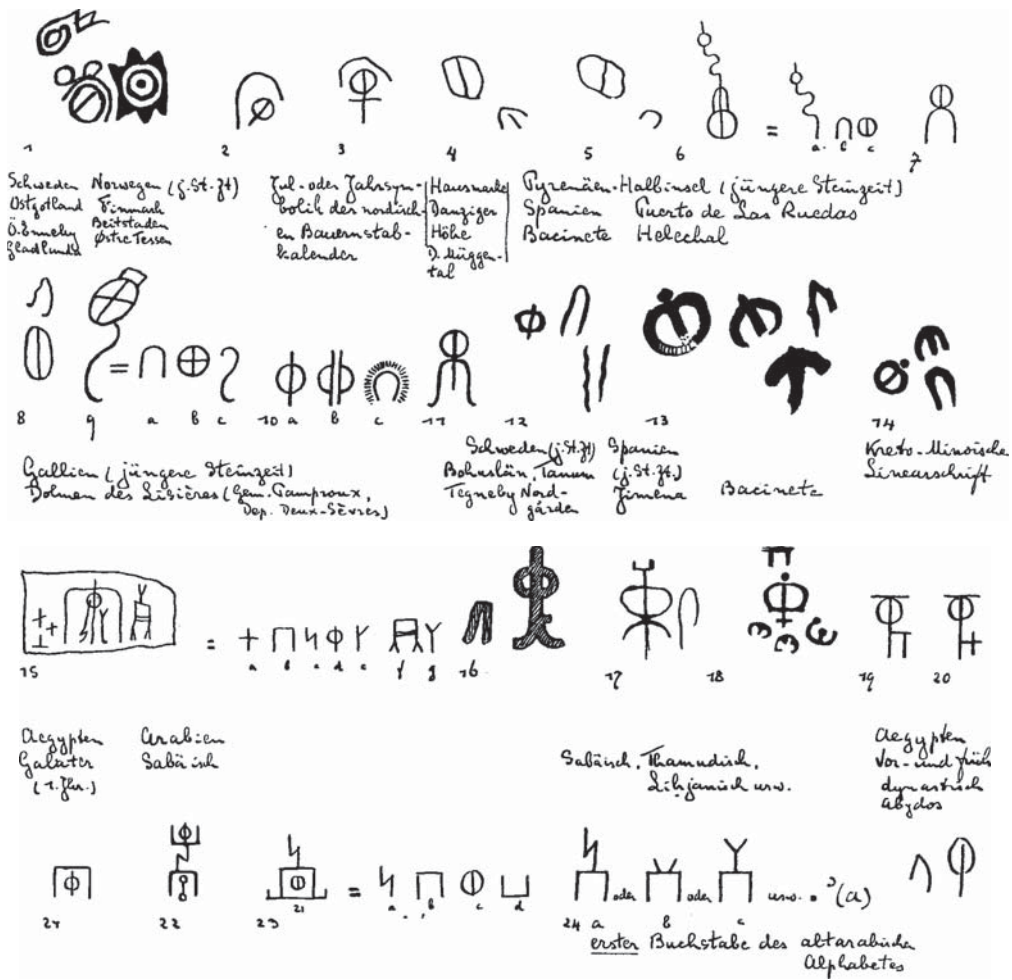 1 2 3 4 5 6 = a. b c 7
Schweden
Ostgotland
Ö. Enneby
Norwegen (j. St. Zt)
Finmark
Beitstaden
Østre Tessen
Jul- oder Jahrsym-
bolik des nordisch-
en Bauernstab-
kalender
Hausmarke
Danziger
Höhe
D. Müggen-
tal
Pyrenäen-Halbinsel (jüngere Steinzeit)
Spanien Puerto de Las Ruedas
Bacinete Helechal
8 9 = a b c 10 a b c 11 12 13 14
Gallien (jüngere Steinzeit)
Dolmen des Lisières (Gem. Pamproux,
Dep. Deux-Sèvres)
Schweden (j. St. Zt)
Bohuslän, Tanum
Tegneby Nord-
gärden
Spanien
(j. St. Zt.)
Jimena Bacinete
Kreto-Minoische
Linearschrift
15 = a b c d e f g 16 17 18 19 20
Aegypten
(1. Jhr.)
Arabien
Sabäisch
Sabäisch, Thamudisch,
Lihjanisch usw.
Aegypten
Vor- und früh
dynastisch
Abydos
21 22 23 21 = a b c d 24 a oder b oder c usw. (a)
erster Buchstabe des altarabischen
Alphabetes